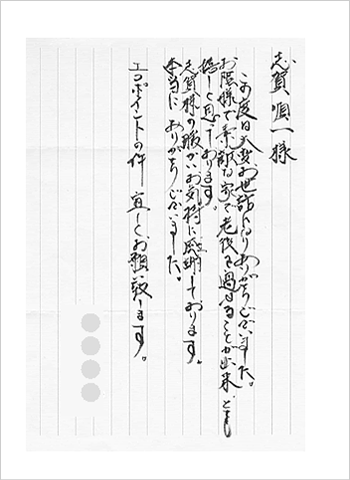 志賀 順一様
この度は大変お世話になりありがとうございました。
お陰様で素敵な家で老後を過ごすことが出来、とても
嬉しく思っております。
志賀様の暖かいお気持に感謝しております。
本当にありがとうございました。
エコポイントの件 宜しくお願い致します。